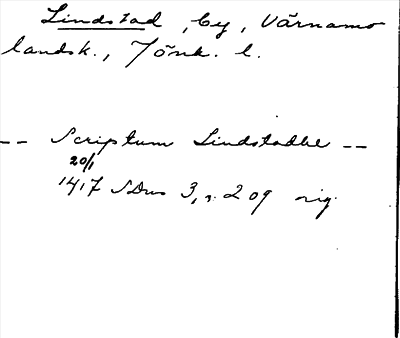 Lindstad, by, Värnamo
landsk., Jönk. l.
-- Scriptum Lindstadhe --
20/1
1417 SDns 3, s. 209 orig.